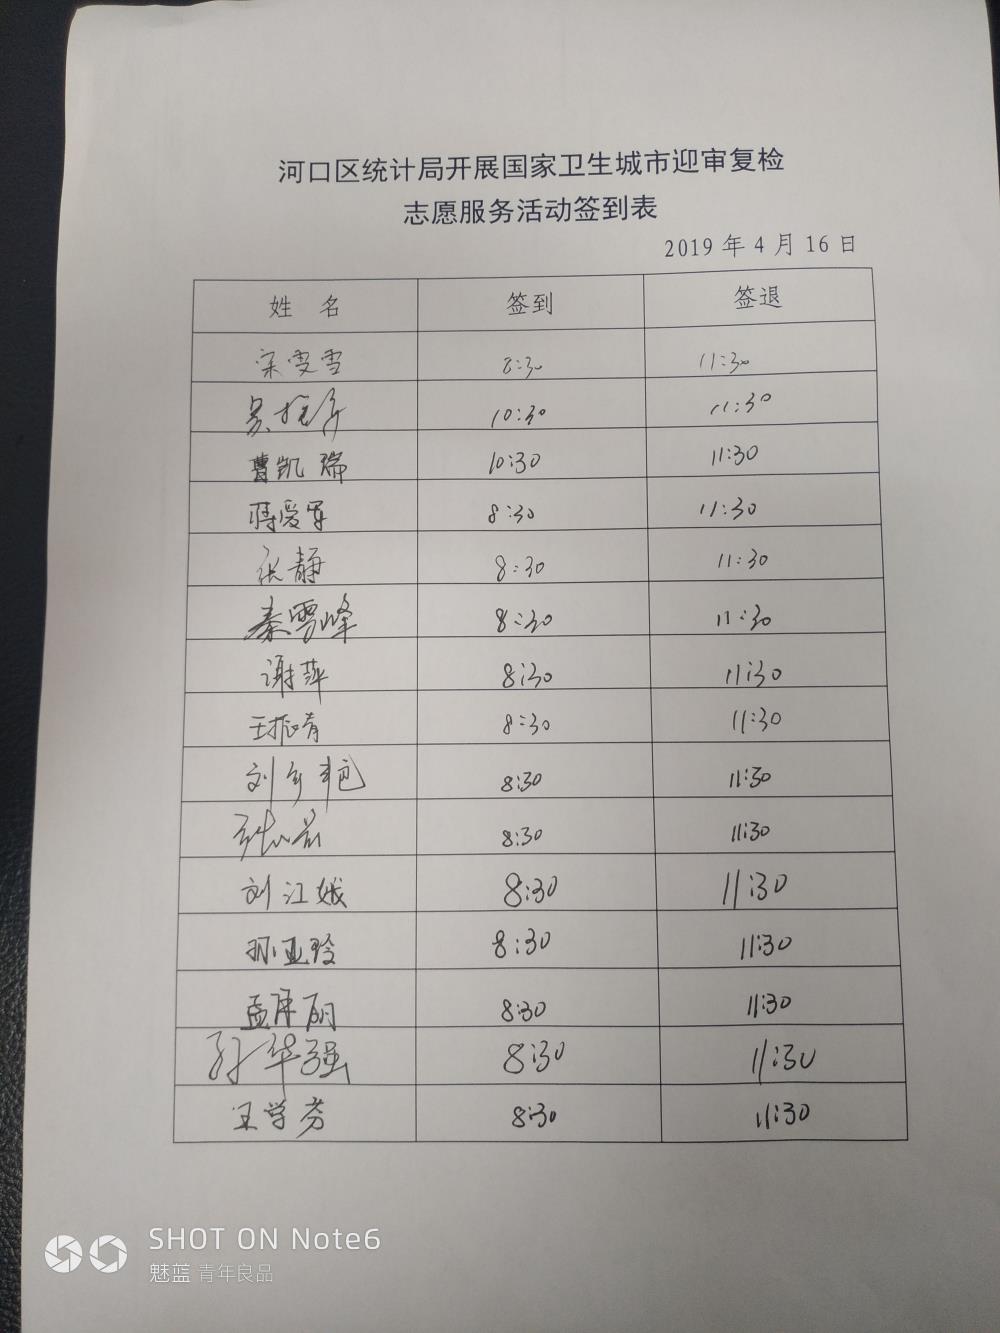 河口区统计局开展国家卫生城市迎审复检
志愿服务活动签到表
2019年4月16日
姓 名 签到 签退
宋雯雪 8:30 11:30
10:30 11:30
曹凯瑞 10:30 11:30
蒋爱军 8:30 11:30
张静 8:30 11:30
秦雪峰 8:30 11:30
谢萍 8:30 11:30
王振青 8:30 11:30
刘 8:30 11:30
8:30 11:30
刘江娥 8:30 11:30
孙亚玲 8:30 11:30
孟 丽 8:30 11:30
孙华强 8:30 11:30
王学芬 8:30 11:30
SHOT ON Note6
魅蓝 青年良品